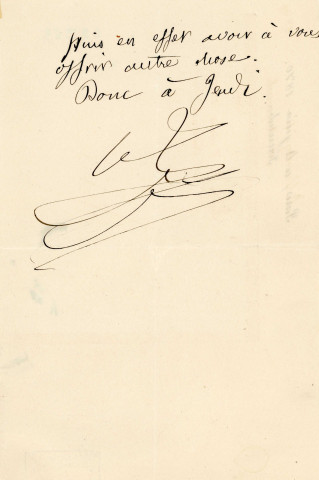 puis en effet avoir à vous
offrir autre chose.
Donc à Jeudi.